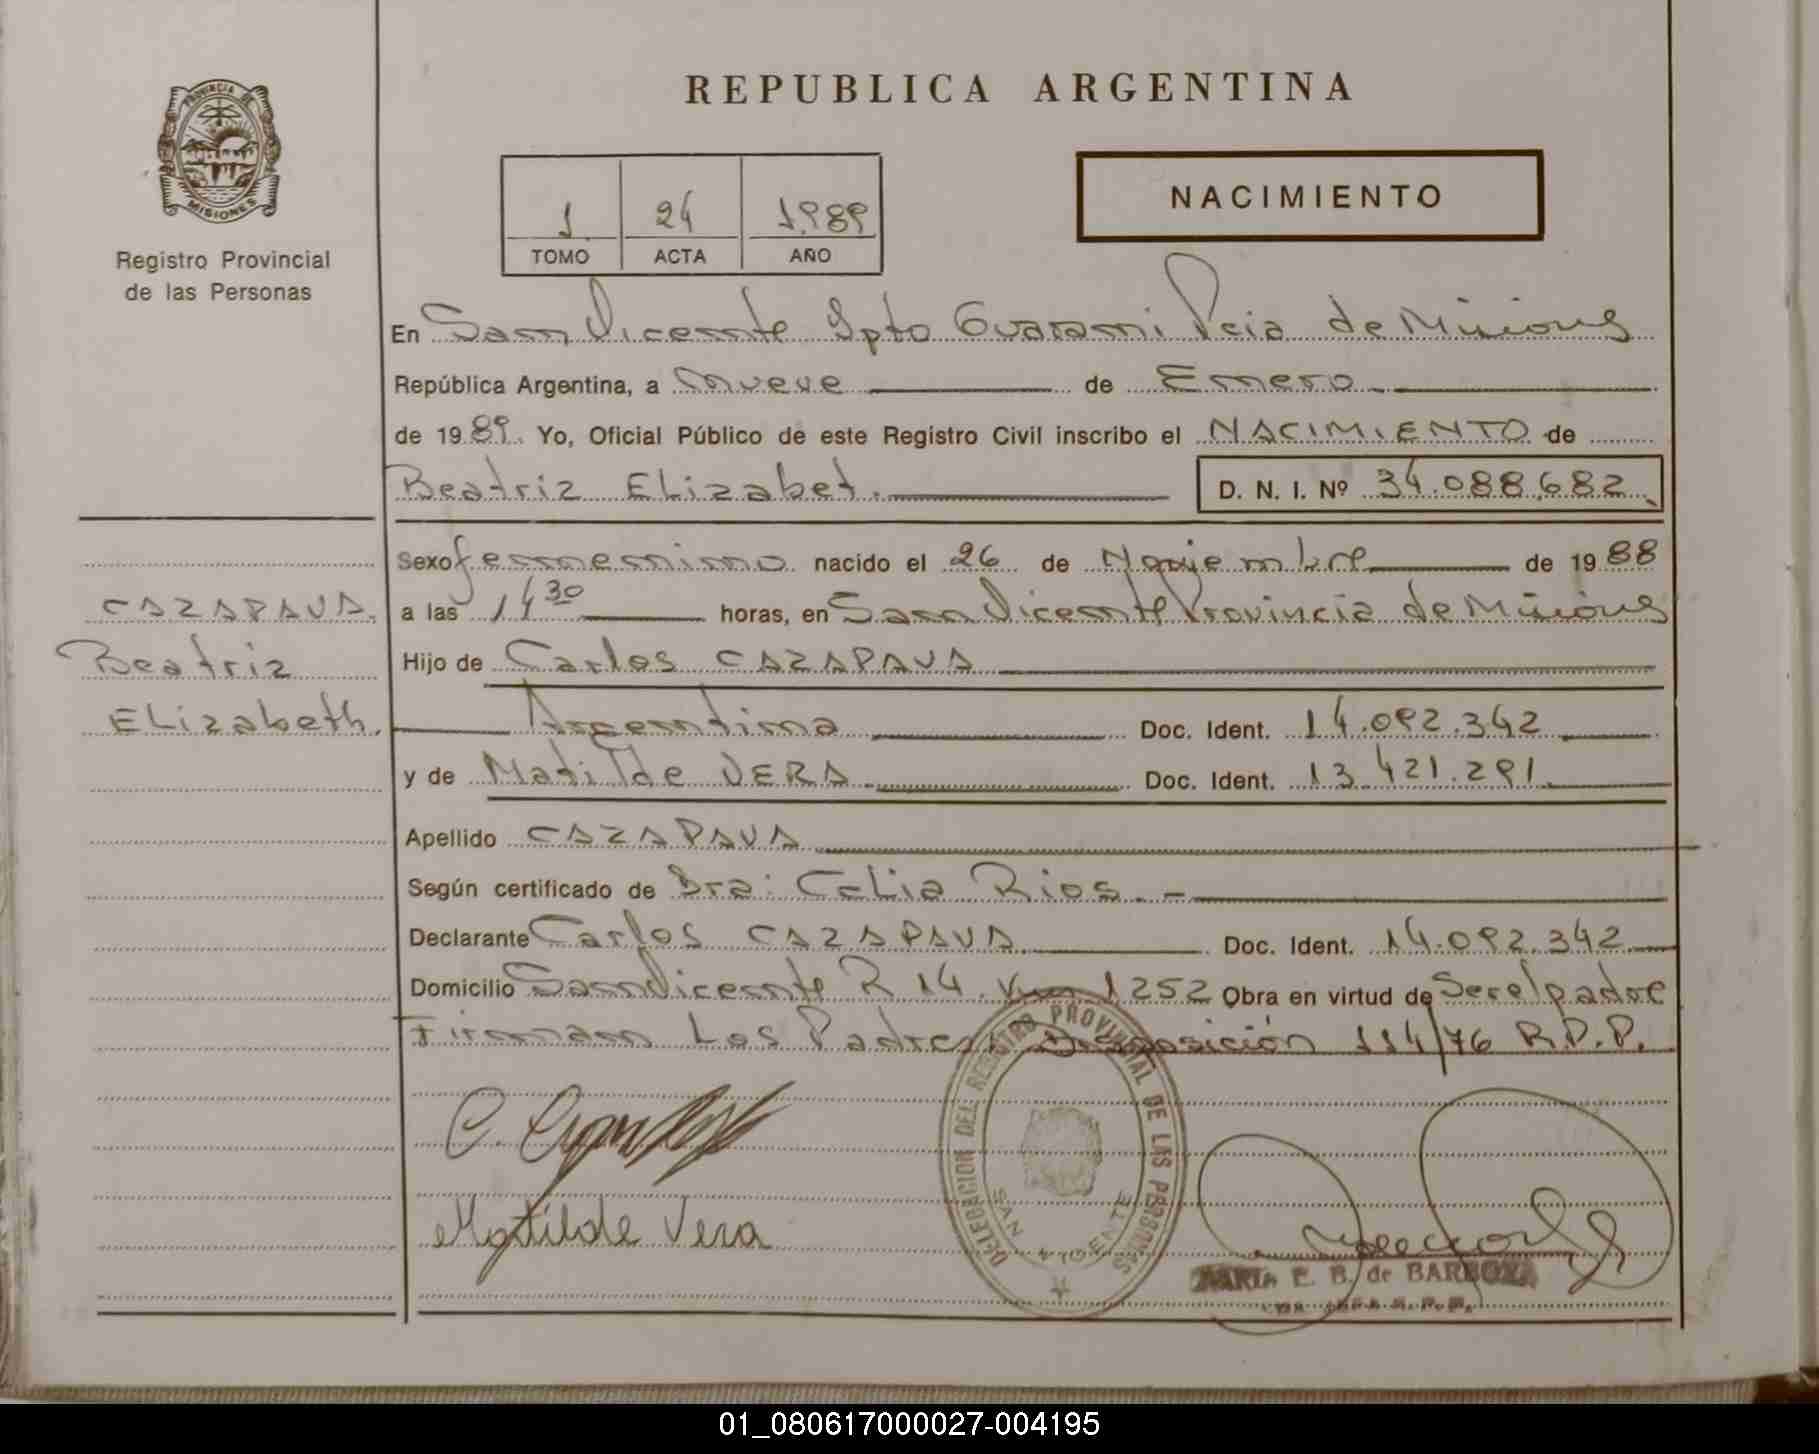 REPUBLICA ARGENTINA
PROVINCIA DE
MISIONES
Registro Provincial
de las Personas
1 24 1989
TOMO ACTA AÑO
NACIMIENTO
En San Vicente Dpto Guarani Pcia de Misiones
República Argentina, a nueve de Enero
de 1989. Yo, Oficial Público de este Registro Civil inscribo el NACIMIENTO de
Beatriz ELizabet. D. N. I. Nº 34.088.682
Sexo femenino nacido el 26 de Noviembre de 1988
a las 14 30 horas, en San Vicente Provincia de Misiones
Hijo de Carlos CAZAPAVA
Argentina Doc. Ident. 14.092.342
y de Matilde VERA Doc. Ident. 13.421.291.
Apellido CAZAPAVA
Según certificado de Dra: Celia Rios. -
Declarante Carlos CAZAPAVA Doc. Ident. 14.092.342
Domicilio San Vicente R 14. Km 1252 Obra en virtud de Ser el padre
Firman Los Padres Disposición 114/76 R.P.P.
CAZAPAVA.
Beatriz
ELizabeth.
DELEGACION DEL REGISTRO PROVINCIAL DE LAS PERSONAS
SAN VICENTE
Matilde Vera
MARIA E. B. de BARBOZA
01_080617000027-004195